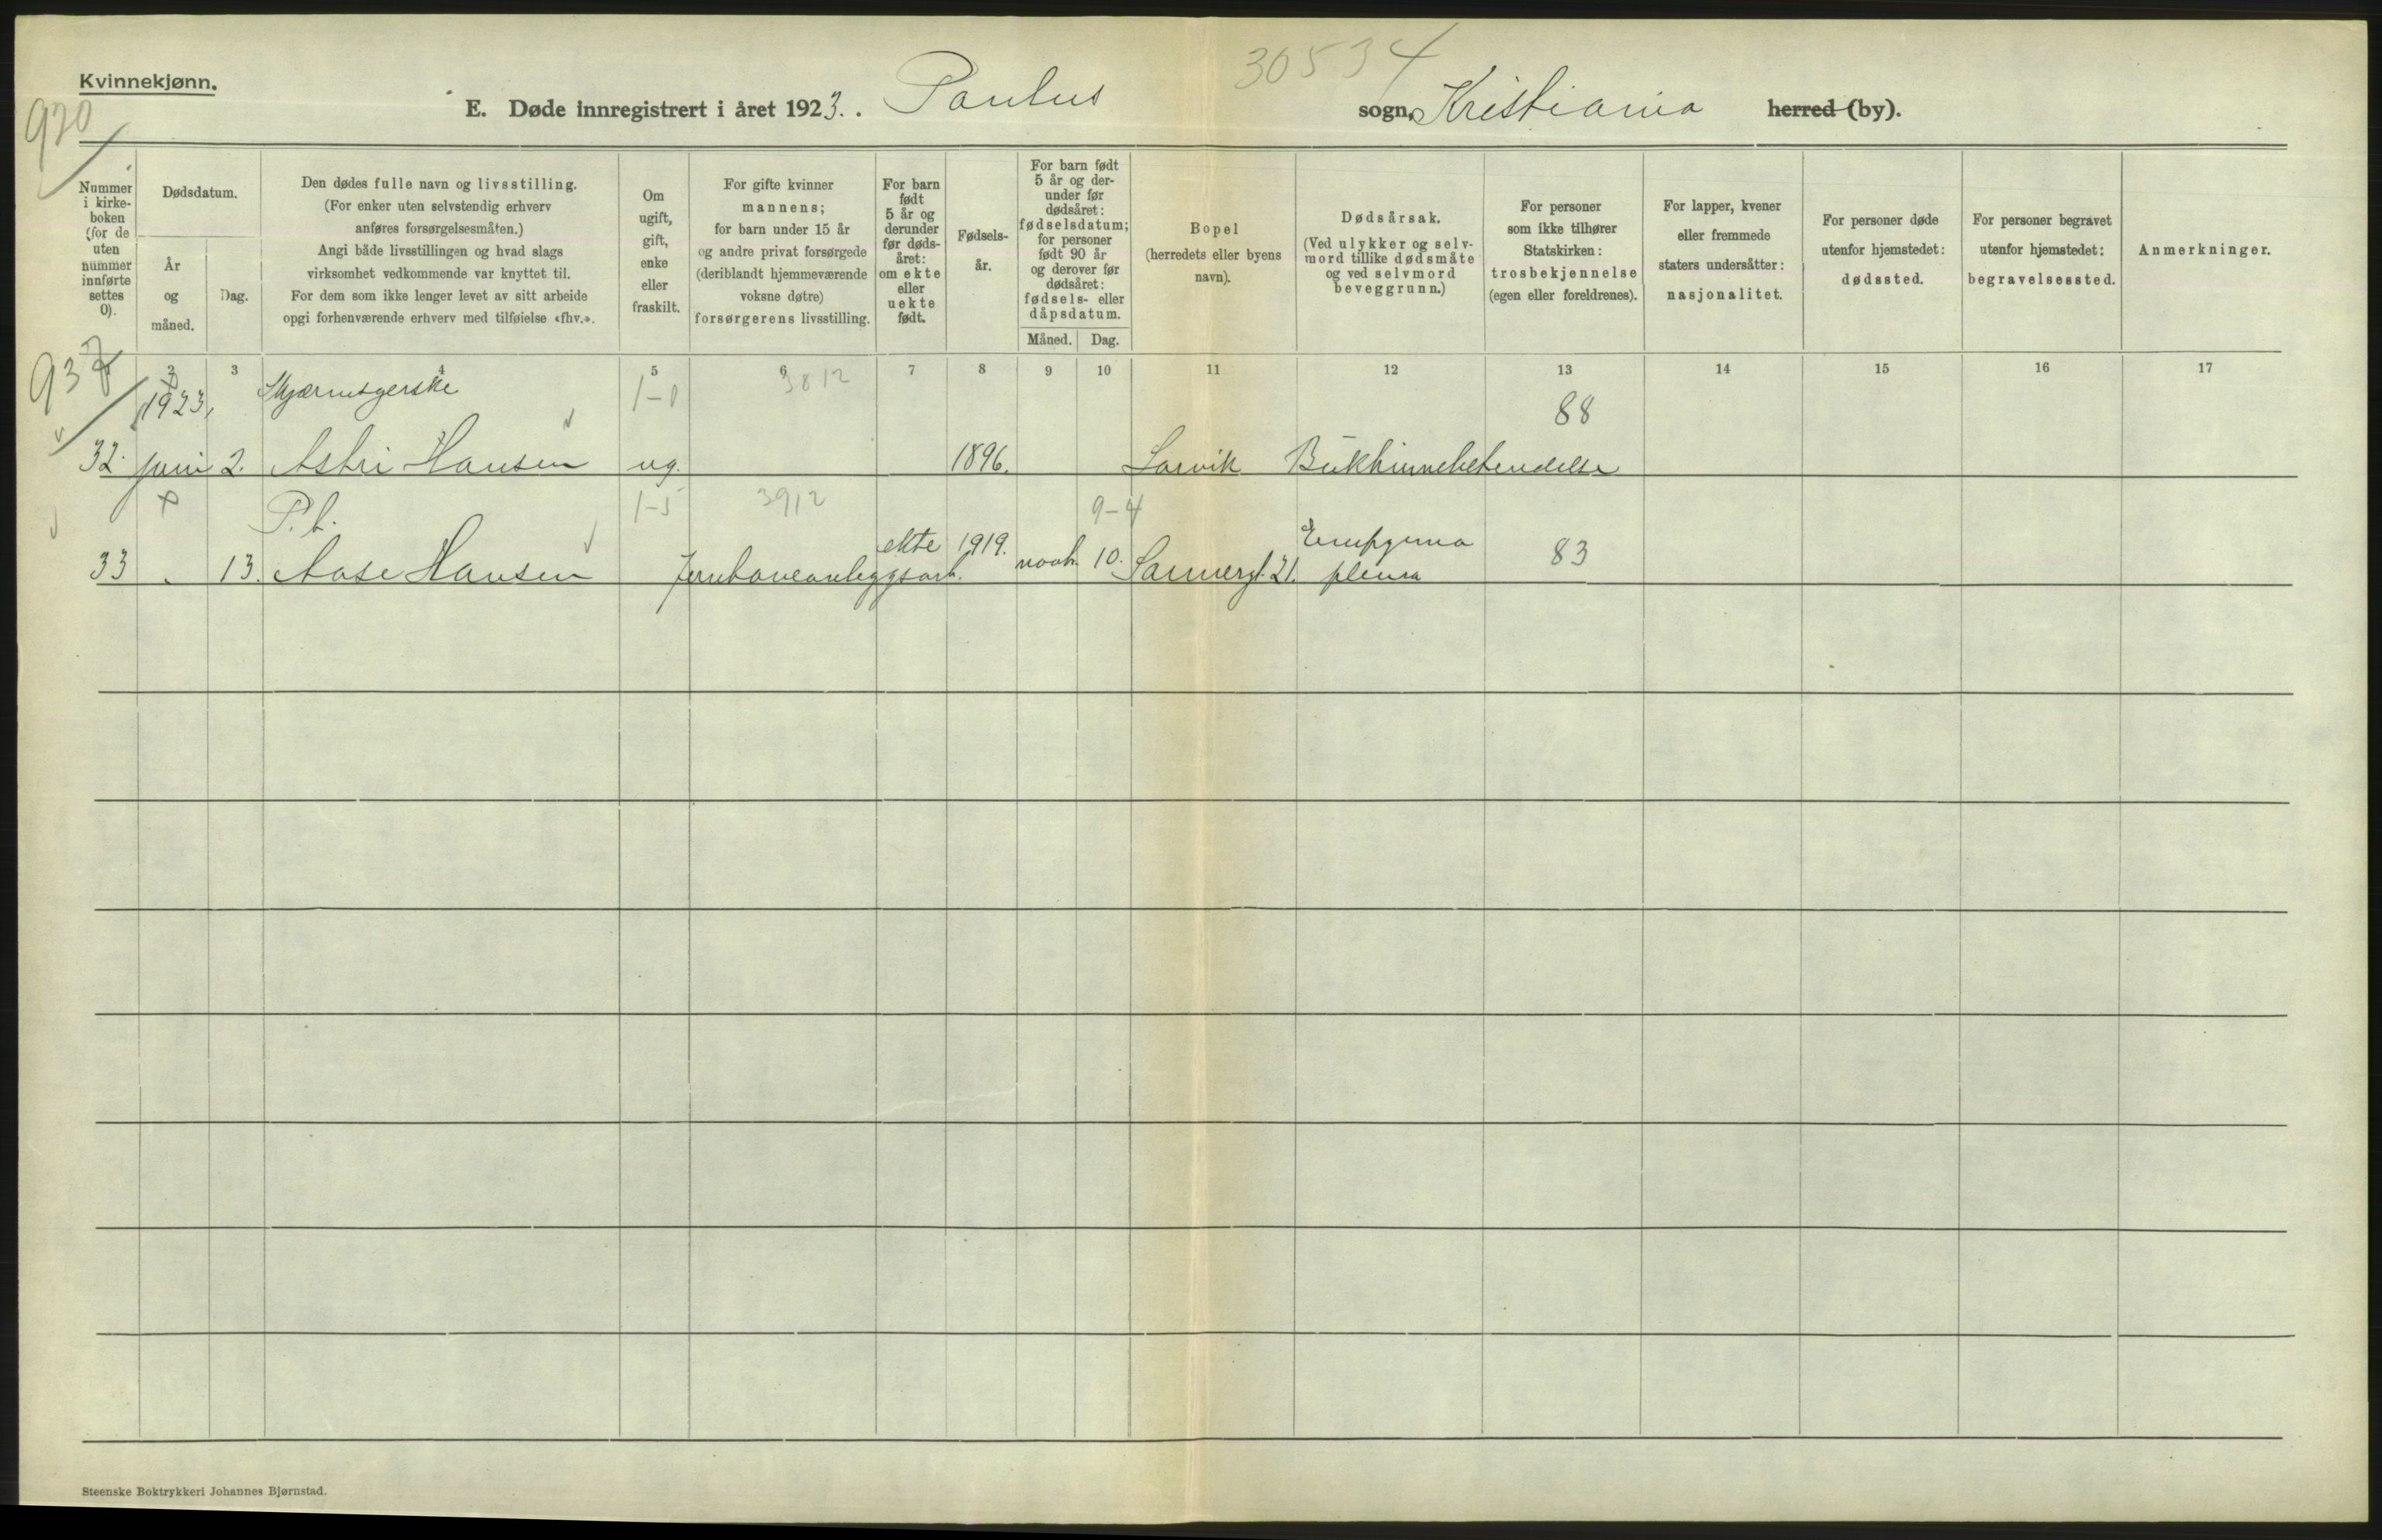 Kvinnekjønn.
930
30534
E. Døde innregistrert i året 1923. . Paulus sogn, Kristiania herred (by).
Nummer i kirke- boken (for de uten nummer innførte settes 0).
Dødsdatum.
År og måned.
Dag.
Den dødes fulle navn og livsstilling.
(For enker uten selvstendig erhverv
anføres forsørgelsesmåten.)
Angi både livsstillingen og hvad slags
virksomhet vedkommende var knyttet til.
For dem som ikke lenger levet av sitt arbeide
opgi forhenværende erhverv med tilføielse «fhv.».
Om ugift, gift, enke eller fraskilt.
For gifte kvinner
mannens;
for barn under 15 år
og andre privat forsørgede
(deriblandt hjemmeværende
voksne døtre)
forsørgerens livsstilling.
For barn født 5 år og derunder før døds- året: om ekte eller uekte født.
Fødsels- år.
For barn født 5 år og der- under før dødsåret: fødselsdatum; for personer født 90 år og derover før dødsåret: fødsels- eller dåpsdatum.
Måned. Dag.
Bopel
(herredets eller byens
navn).
Dødsårsak.
(Ved ulykker og selv-
mord tillike dødsmåte
og ved selvmord
beveggrunn.)
For personer
som ikke tilhører
Statskirken:
trosbekjennelse
(egen eller foreldrenes).
For lapper, kvener
eller fremmede
staters undersåtter:
nasjonalitet.
For personer døde
utenfor hjemstedet:
dødssted.
For personer begravet
utenfor hjemstedet:
begravelsessted.
Anmerkninger.
937
2 3 4 5 6 7 8 9 10 11 12 13 14 15 16 17
1923, 1-0 3812 88
32. juni 2. Astri Hansen ug. 1896. Larvik Bukhinnebetendelse
P.b. 1-5 3912 9-4
33 " 13. Aase Hansen Jernbaneanleggsarb. ekte 1919. novb. 10. Sannergt. 21. Empyema pleura 83
Steenske Boktrykkeri Johannes Bjørnstad.